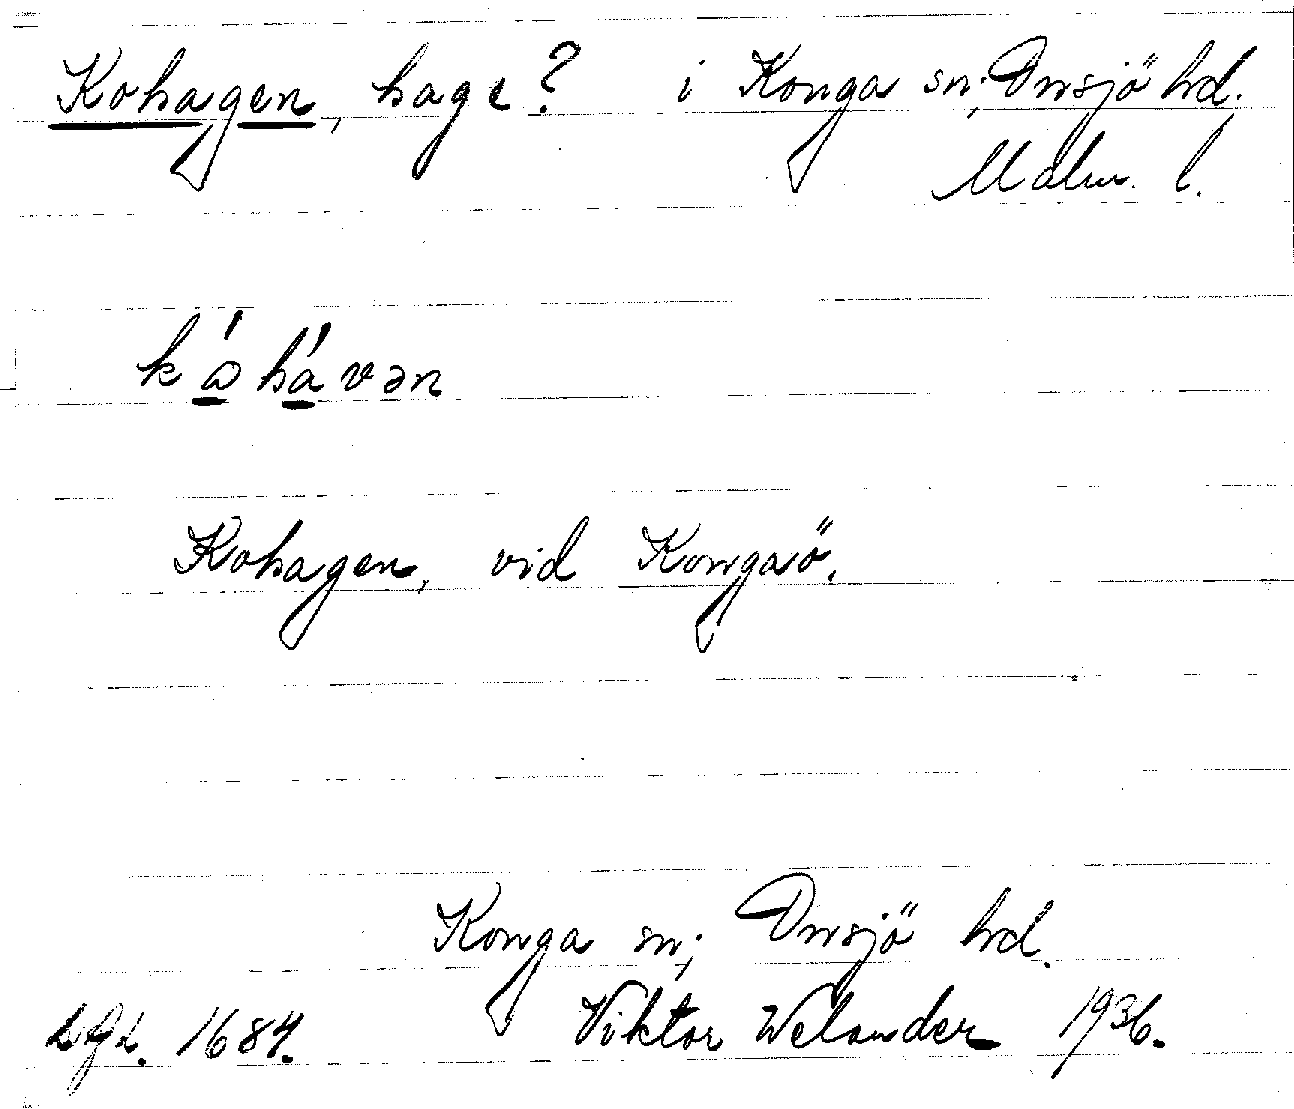 Kohagen, hage? i Konga sn; Onsjö hd.
Malm. l.
kɷ́há vən
Kohagen, vid Kongaö.
Konga sn; Onsjö hd.
LGL. 1684. Viktor Welander 1936.